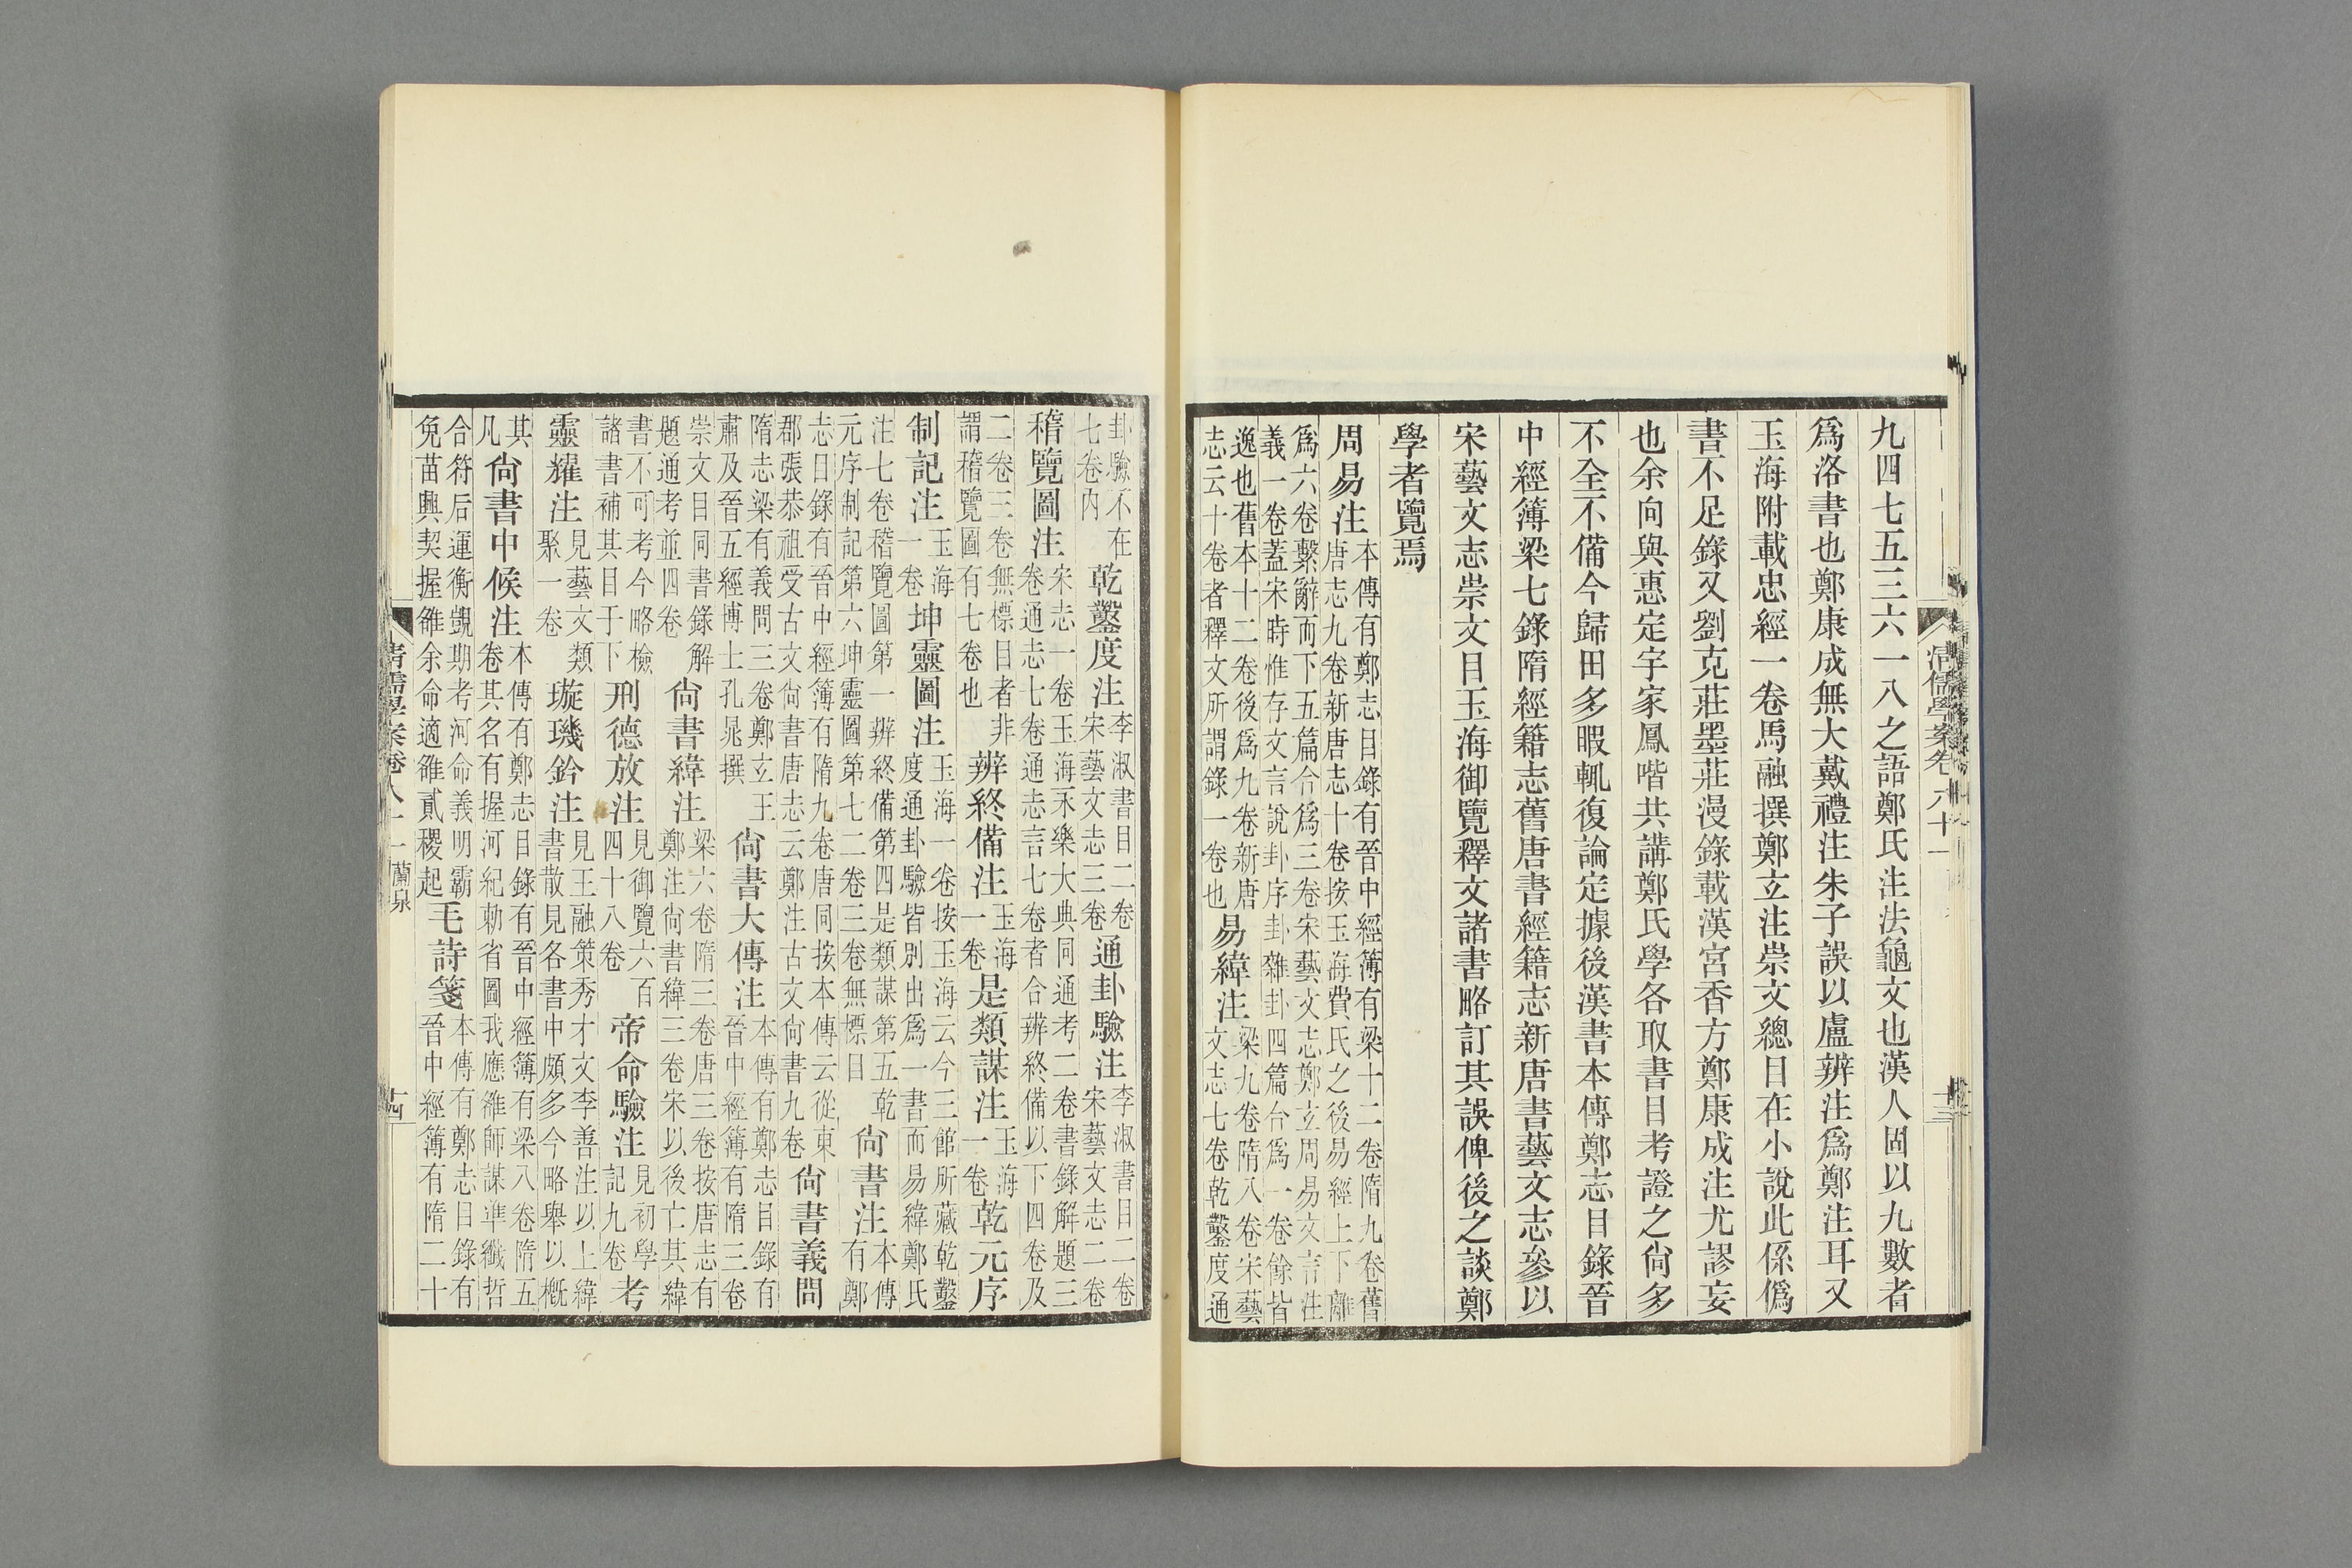 清儒學案卷八十一
九四七五三六一八之語鄭氏注法龜文也漢人固以九數者
爲洛書也鄭康成無大戴禮注朱子誤以盧辨注爲鄭注耳又
玉海附載忠經一卷馬融撰鄭玄注崇文總目在小說此係僞
書不足錄又劉克莊墨莊漫錄載漢宮香方鄭康成注尤謬妄
也余向與惠定宇家鳳喈共講鄭氏學各取書目考證之尙多
不全不備今歸田多暇輒復論定據後漢書本傳鄭志目錄晉
中經簿梁七錄隋經籍志舊唐書經籍志新唐書藝文志參以
宋藝文志崇文目玉海御覽釋文諸書略訂其誤俾後之談鄭
學者覽焉
周易注本傳有鄭志目錄有晉中經簿有梁十二卷隋九卷舊唐志九卷新唐志十卷按玉海費氏之後易經上下離
爲六卷繫辭而下五篇合爲三卷宋藝文志鄭玄周易文言注義一卷蓋宋時惟存文言說卦序卦雜卦四篇合爲一卷餘皆
逸也舊本十二卷後爲九卷新唐志云十卷者釋文所謂錄一卷也易緯注梁九卷隋八卷宋藝文志七卷乾鑿度通
卦驗不在七卷内乾鑿度注李淑書目二卷宋藝文志三卷通卦驗注李淑書目二卷宋藝文志二卷
稽覽圖注宋志一卷玉海永樂大典同通考二卷書錄解題三卷通志七卷通志言七卷者合辨終備以下四卷及
二卷三卷無標目者非謂稽覽圖有七卷也辨終備注玉海一卷是類謀注玉海一卷乾元序
制記注玉海一卷坤靈圖注玉海一卷按玉海云今三館所藏乾鑿度通卦驗皆別出爲一書而易緯鄭氏
注七卷稽覽圖第一辨終備第四是類謀第五乾元序制記第六坤靈圖第七二卷三卷無標目尙書注本傳有鄭
志目錄有晉中經簿有隋九卷唐同按本傳云從東郡張恭祖受古文尙書唐志云鄭注古文尙書九卷尙書義問
隋志梁有義問三卷鄭玄王肅及晉五經博士孔晁撰尙書大傳注本傳有鄭志目錄有晉中經簿有隋三卷
崇文目同書錄解題通考並四卷尙書緯注梁六卷隋三卷唐三卷按唐志有鄭注尙書緯三卷宋以後亡其緯
書不可考今略檢諸書補其目于下刑德放注見御覽六百四十八卷帝命驗注見初學記九卷考
靈耀注見藝文類聚一卷璇璣鈐注見王融策秀才文李善注以上緯書散見各書中頗多今略舉以概
其凡尙書中候注本傳有鄭志目錄有晉中經簿有梁八卷隋五卷其名有握河紀勅省圖我應雒師謀準纖哲
合符后運衡覬期考河命義明霸免苗興契握雒余命適雒貳稷起毛詩箋本傳有鄭志目錄有晉中經簿有隋二十
蘭泉
十四